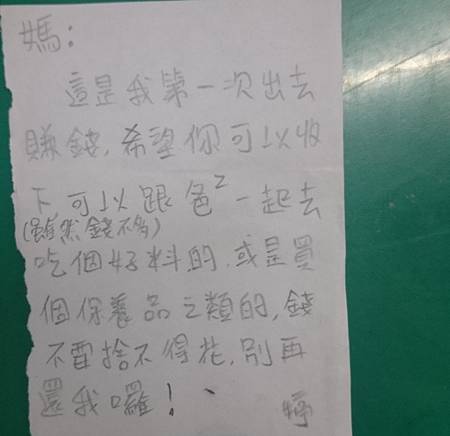 媽:
這是我第一次出去
賺錢,希望你可以收
下可以跟色²一起去
(雖然錢不多)
吃個好料的,或是買
個保養品之類的,錢
不要捨不得花,別再
還我囉!